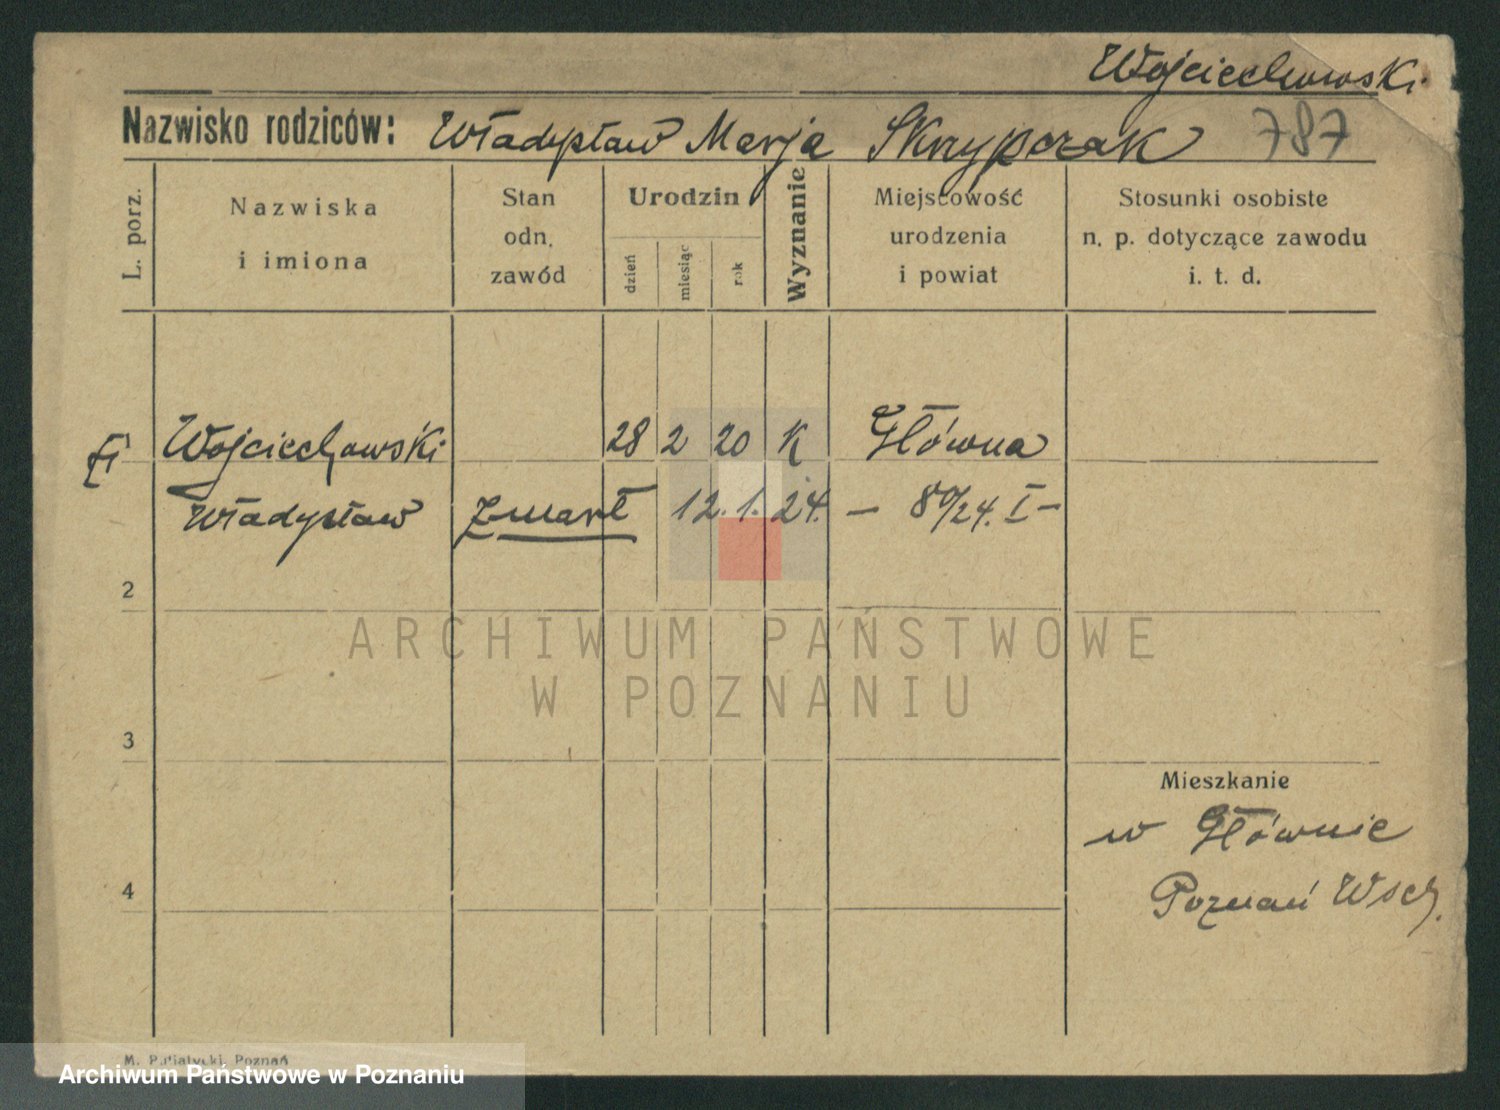 Wojciechowski
Nazwisko rodziców: Władysław Marja Skrzypczak 787
L. porz.
Nazwiska
i imiona
Stan
odn.
zawód
Urodzin
dzień
miesiąc
rok
Wyznanie
Miejscowość
urodzenia
i powiat
Stosunki osobiste
n. p. dotyczące zawodu
i. t. d.
Wojciechowski 28 2 20 K Główna
Władysław zmarł 12.1.24. — 80/24. I —
2
ARCHIWUM PAŃSTWOWE
W POZNANIU
3
Mieszkanie
w Głównie
4
Poznań Wsch.
M. Poznań
Archiwum Państwowe w Poznaniu